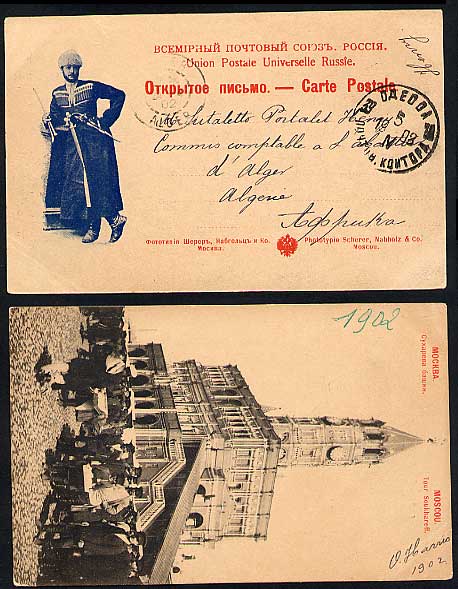 ВСЕМІРНЫЙ ПОЧТОВЫЙ СОЮЗЪ. РОССІЯ.
Union Postale Universelle Russie.
Открытое письмо. — Carte Postale
Portalet
Commis comptable a l'
d'Alger
Algerie
Африка
ОДЕССА
КОНТОРА
Фототипія Шереръ, Набгольцъ и Ко.
Москва.
Phototypie Scherer, Nabholz & Co.
Moscou.
1902
МОСКВА.
Сухарева башня.
MOSCOU.
Tour Soukhareff.
O. Harris
1902